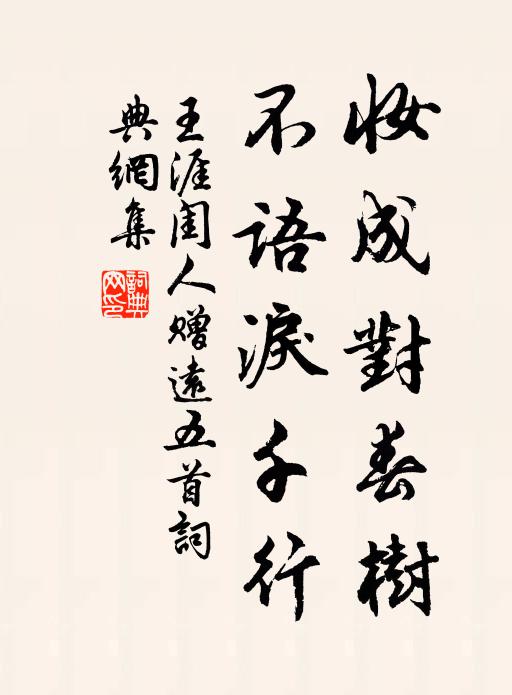 妝成對春樹
不語淚千行
王涯閨人贈遠五首詞
典網集
詞典網印